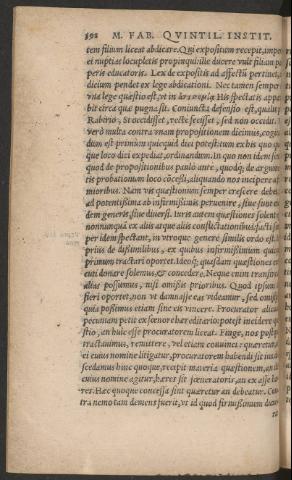 392 M. FAB. QVINTIL. INSTIT.
tem filium liceat abdicare. Qui expositum recepit, impe
ei nuptias locupletis propinquæ: ille ducere vult filiam pa
peris educatoris. Lex de expositis ad affectū pertinet,
dicium pendet ex lege abdicationi. Nec tamen semper
vna lege quæstio est, vt in His spectatis appa
bit circa quæ pugna sit. Coniuncta defensio est, qualis
Rabirio, Si occidisset, rectè fecisset, sed non occidit.
verò multa contra vnam propositionem dicimus, cogi
dum est primùm quicquid dici potest: tum ex his quo q
que loco dici expediat, ordinandum. In quo non idem
quod de propositionibus paulò antè, quodq; de argumē
tis probationum loco cōcessi, aliquando nos incipere a
mioribus. Nam vis quæstionum semper crescere debet
ad potentissima ab infirmissimis peruenire, siue sunt e
dem generis, siue diuersi. Iuris autem quæstiones solent
nonnunquā ex aliis atque aliis conflictationibus: facti
per idem spectant, in vtroque genere similis ordo est.
prius de dissimilibus, ex quibus infirmissimum quod
primùm tractari oportet. Ideoq; quasdam quæstiones
cuti donare solemus, & concedere. Neque enim transire
alias possumus, nisi omissis prioribus. Quod ipsum
fieri oportet, non vt damnasse eas videamur, sed omissi
quia possimus etiam sine eis vincere. Procurator alicu
pecuniam petit ex fœnore hæreditario: potest incidere q
stio, an huic esse procuratorem liceat. Finge, nos postq
tractauimus, remittere, vel etiam conuinci: quæretur
ei cuius nomine litigatur, procuratorem habendi sit ius
scedamus hinc quoque, recipit materia quæstionem, an
cuius nomine agitur, hæres sit fœneratoris, an ex asse hæ
res. Hæc quoque concessa sint: quæretur an debeatur. Con
tra nemo tam demens fuerit, vt id quod firmissimum